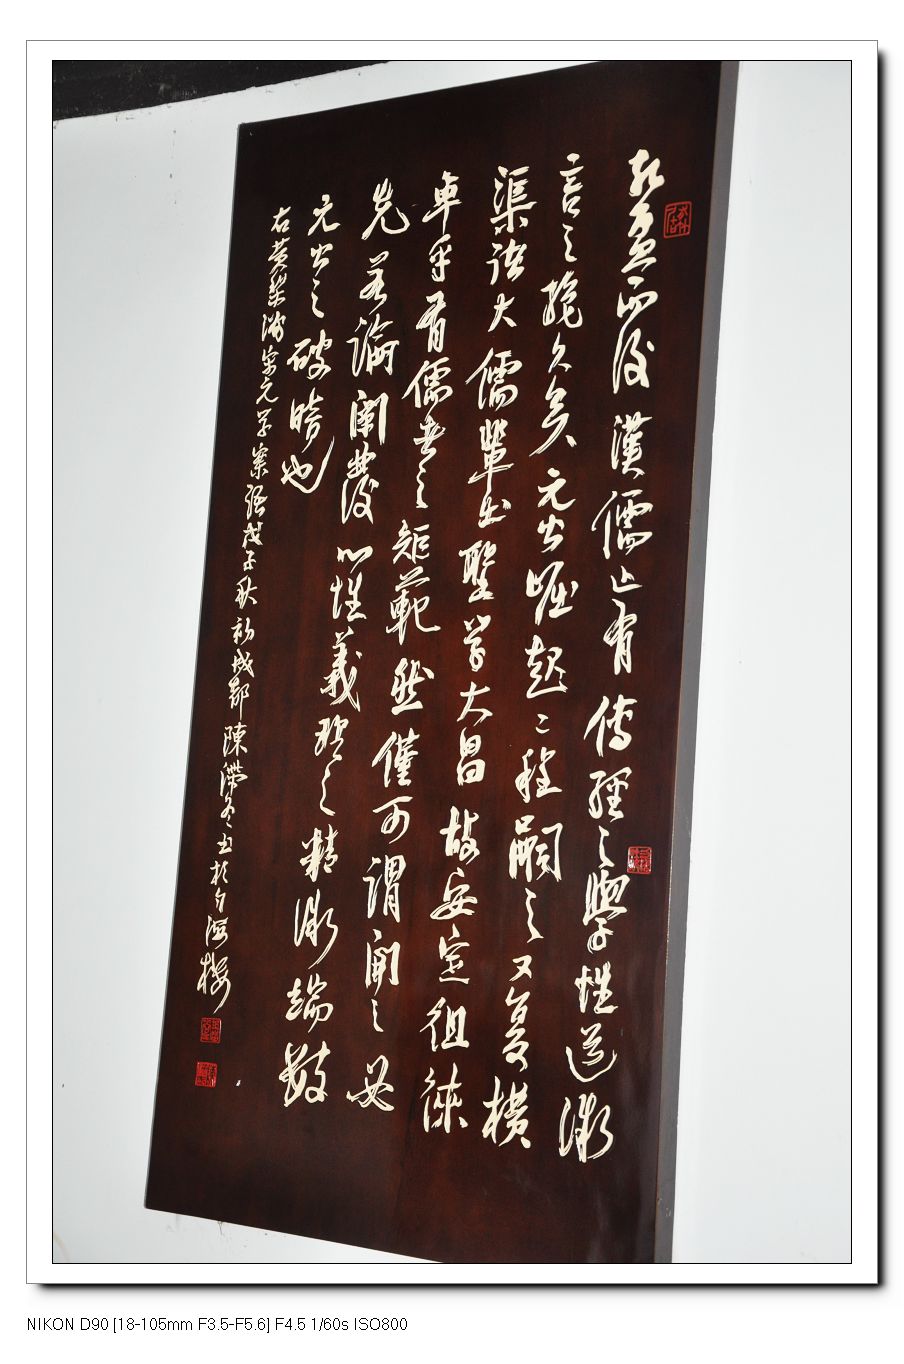 孔孟而後漢儒止有傳經之學性道微
言之絕久矣元公崛起二程嗣之又復橫
渠諸大儒輩出聖學大昌故安定徂徠
卓乎有儒者之矩範然僅可謂開之必
先若論闡發心性義理之精微端數
元公之破暗也
右黃梨洲宋元學案語戊子秋初成都陳滯冬書於海樓
NIKON D90 [18-105mm F3.5-F5.6] F4.5 1/60s ISO800